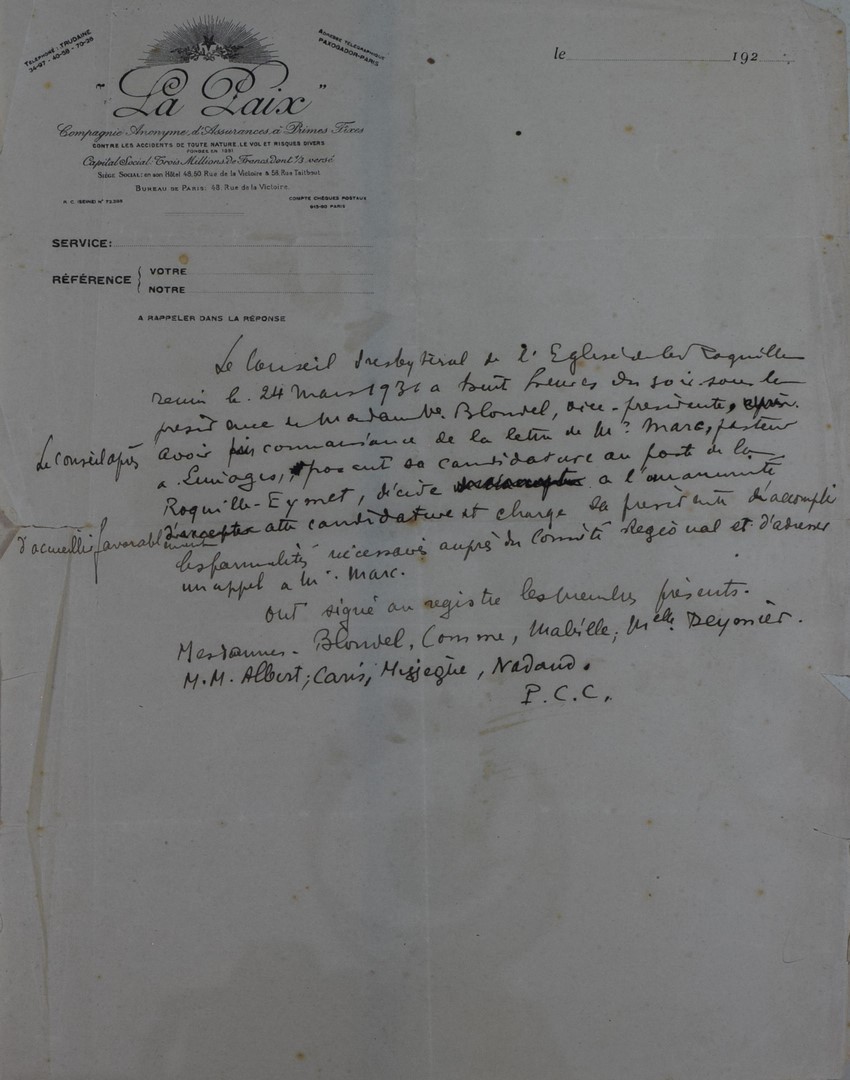 TÉLÉPHONE : TRUDAINE
34-97 - 40-58 - 70-26
ADRESSE TÉLÉGRAPHIQUE
PAXOGADOR-PARIS
le 192
"La Paix"
Compagnie Anonyme d'Assurances à Primes Fixes
CONTRE LES ACCIDENTS DE TOUTE NATURE, LE VOL ET RISQUES DIVERS
FONDÉE EN 1891
Capital Social: Trois Millions de Francs dont 1/3 versé
SIÈGE SOCIAL: en son Hôtel 48, 50 Rue de la Victoire & 58, Rue Taitbout
BUREAU DE PARIS: 48, Rue de la Victoire.
R. C. (SEINE) N°
COMPTE CHÈQUES POSTAUX
PARIS
SERVICE:
RÉFÉRENCE { VOTRE
NOTRE
A RAPPELER DANS LA RÉPONSE
Le Conseil Presbytéral de l'Eglise de la Roquille
reuni le 24 Mars 1931 a huit heures du soir sous la
présidence de Madame Vve Blondel, vice-présidente, après
Le Conseil après avoir pris connaissance de la lettre de Mr. Marc, pasteur
a Limoges, posant sa candidature au poste de la
Roquille-Eymet, décide a l'unanimité
d'accueillir favorablement d'accepter candidature et charge sa presidente d'accomplir
les formalités nécessaires auprès du Comité Régional et d'adresser
un appel a Mr. Marc.
Ont signé au registre les membres présents.
Mesdames - Blondel, Comme, Mabille, Melle Deymier.
M.M. Albert, Caris, Nadaud.
P.C.C.